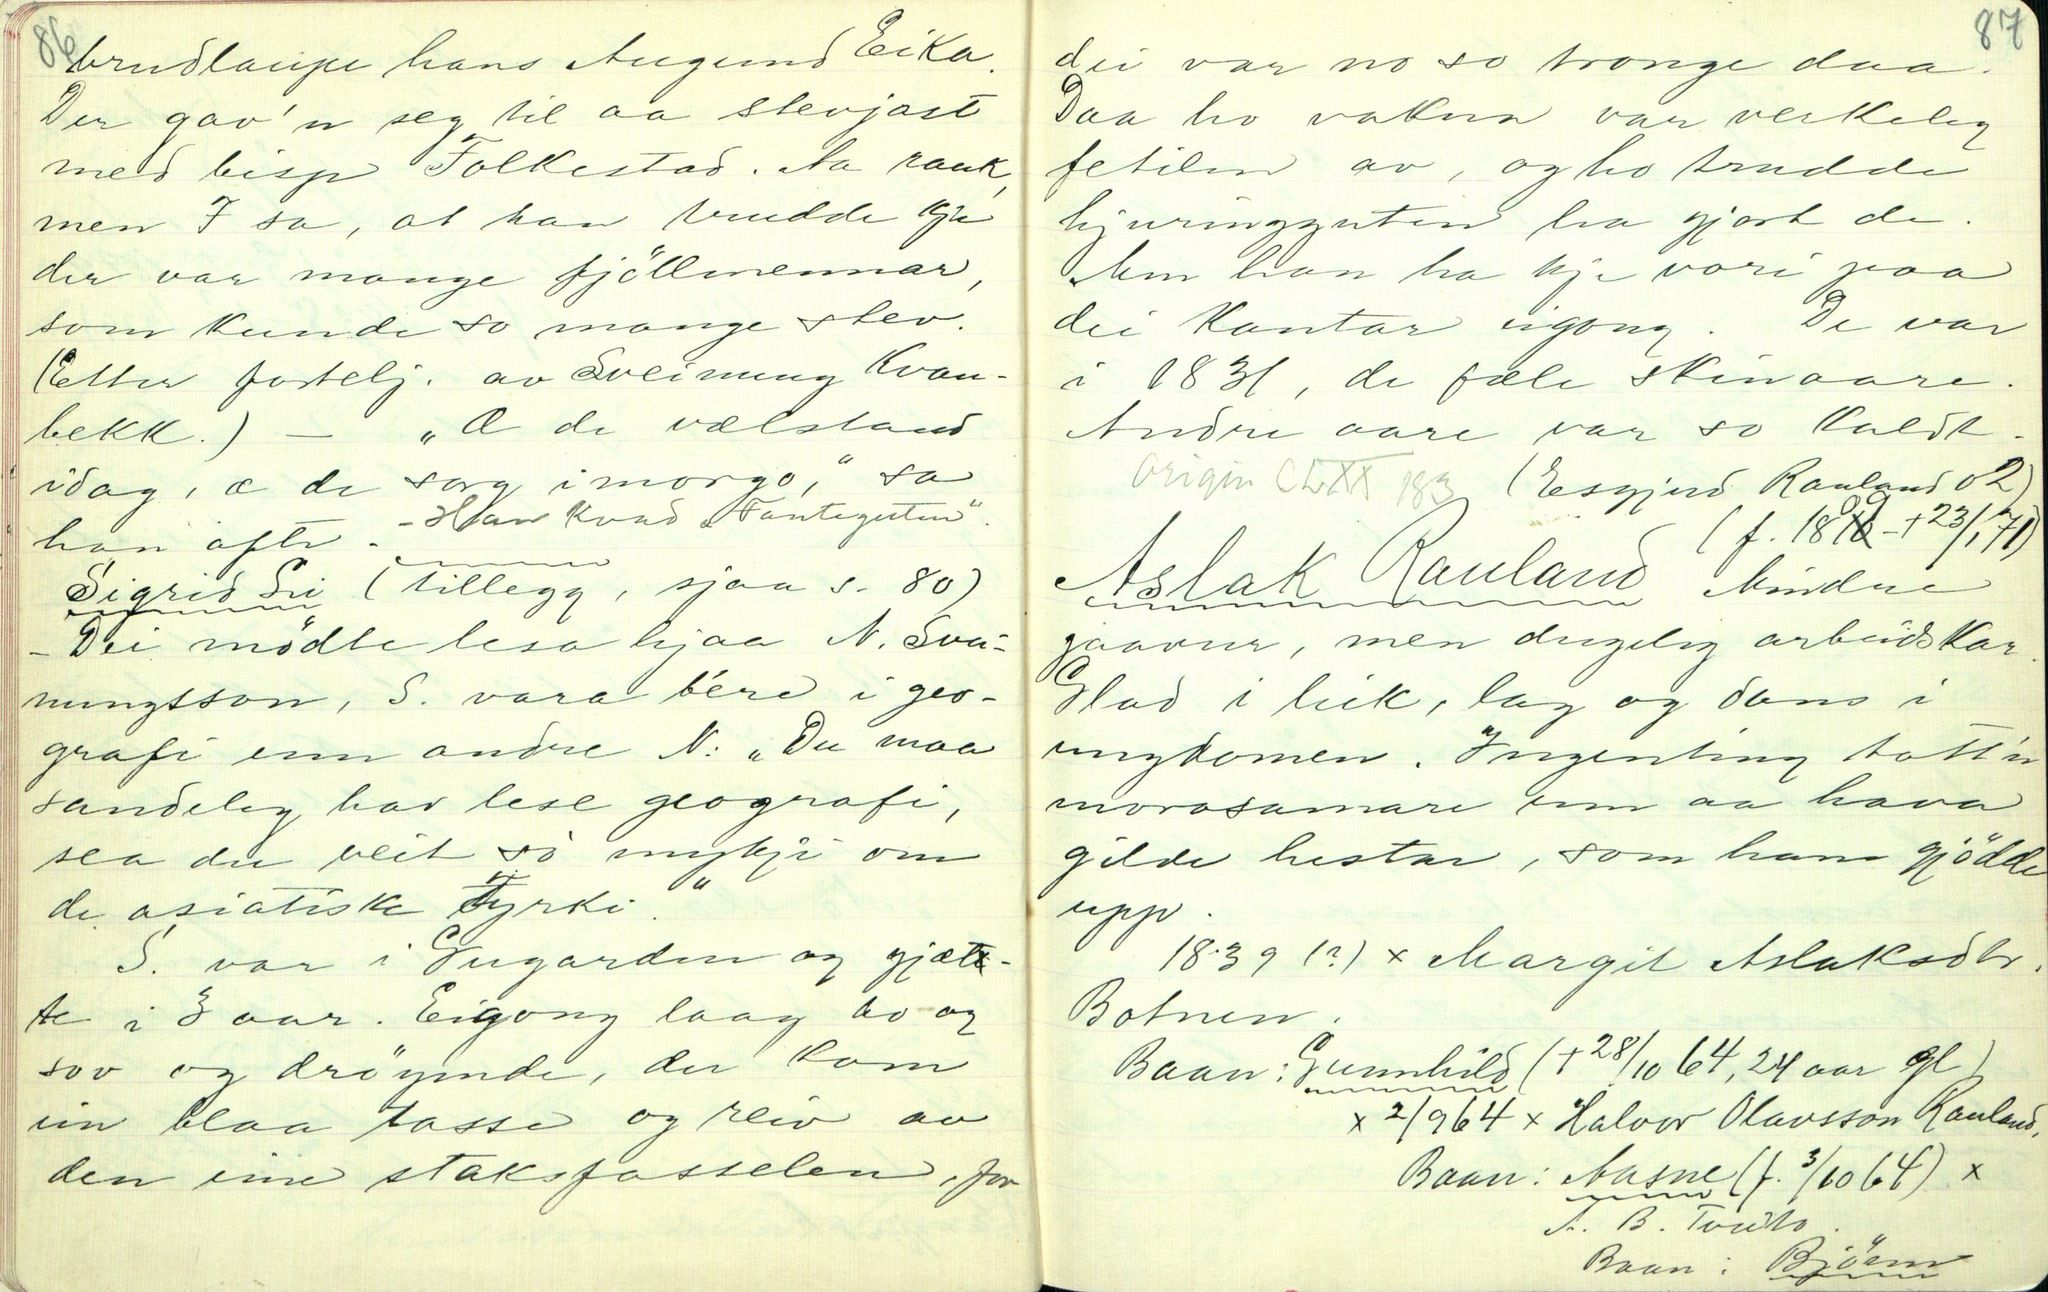 86
brudlaupe hans Augund Eika.
Der gav'n seg til aa stevjast
med bisp Folkestad. Aa rauk,
men F sa, at han trudde kje
der var mange fjöllmennar,
som kunde so mange stev.
(Etter fortelj. av Sveinung Kvan-
bekk.) – „Æ de velstand
idag, æ de sorg imorgo," sa
han ofte. - Han kvad „Fanteguten".
Sigrid Li (tillegg, sjaa s. 80)
- Dei mødte lesa hjaa N. Svei-
nungsson, S. vara bere i geo-
grafi enn andre N: „Du maa
sandeleg hav lese geografi,
sea du veit sò mykji om
de asiatiske Tyrki."
S. var i Gugarden og gjæt-
te i 3 aar. Eigong laag ho og
sov og dröymde, der kom
ein blaa tasse og reiv av
den eine staksfasselen, for
87
dei var no so tronge daa.
Daa ho vakna var verkeleg
fetilen av, og ho trudde
hjuringguten ha gjort de.
Men han ha kje vori paa
dei kantar eigong. De var
i 1831, de fæle skinaare.
Andre aare var so kaldt.
Origin CLXX 183 (Esgjerd Rauland o2)
(f. 1809 - †23/1 71)
Aslak Rauland Mindre
gaavur, men dugeleg arbeidskar.
Glad i leik, lag og dans i
ungdomen. Ingenting tott'n
morosamare enn aa hava
gilde hestar, som han gjödde
upp.
1839 (?) x Margit Aslaksdtr.
Botnen.
Baan: Gunnhild (†28/10 64, 24 aar gl)
x 2/9 64 x Halvor Olavsson Rauland.
Baan: Aasne (f. 3/10 64) x
A. B. Tveito.
Baan: Björn